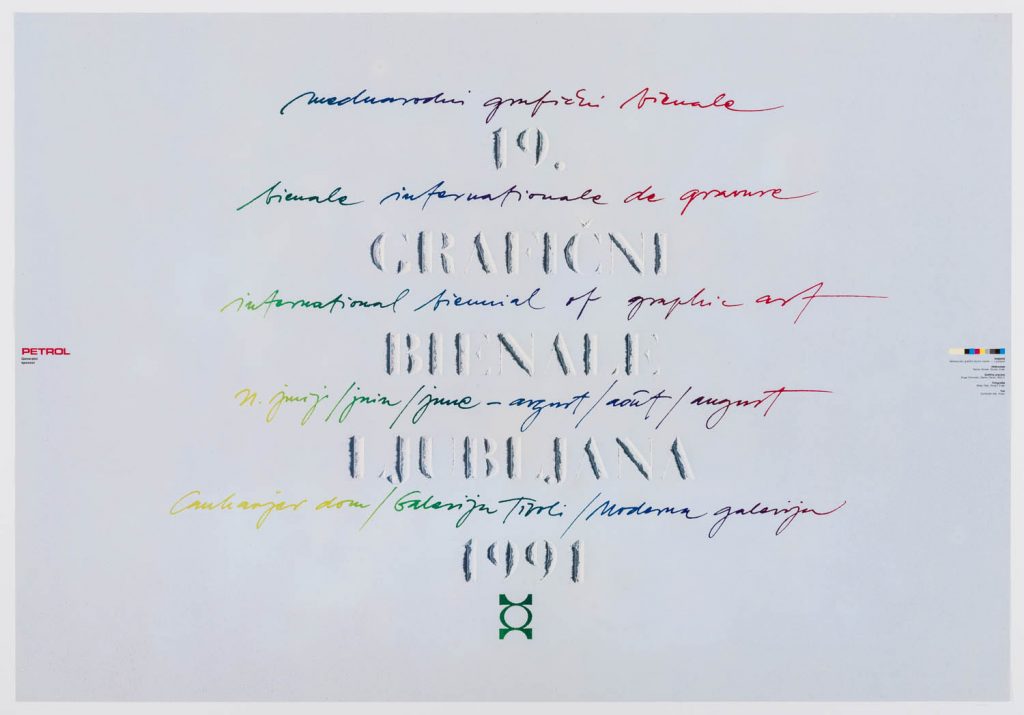 mednarodni grafični bienale
19.
bienale internationale de gravure
GRAFIČNI
international biennial of graphic art
BIENALE
junij / juin / june – avgust / août / august
LJUBLJANA
Cankarjev dom / Galerija Tivoli / Moderna galerija
1991
PETROL
Generalni
sponzor